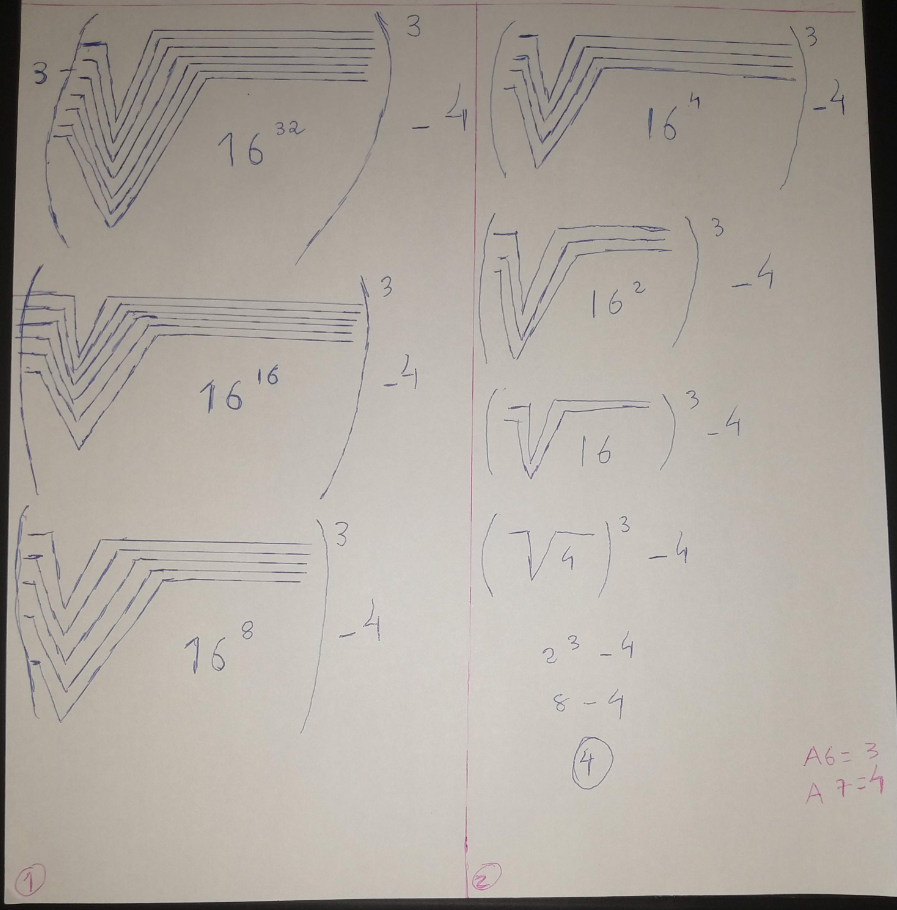 3 (√√√√√√√16³²)³ - 4
(√√√√√√16¹⁶)³ - 4
(√√√√√16⁸)³ - 4
1
(√√√√16⁴)³ - 4
(√√√16²)³ - 4
(√√16)³ - 4
(√4)³ - 4
2³ - 4
8 - 4
4
A6 = 3
A7 = 4
2